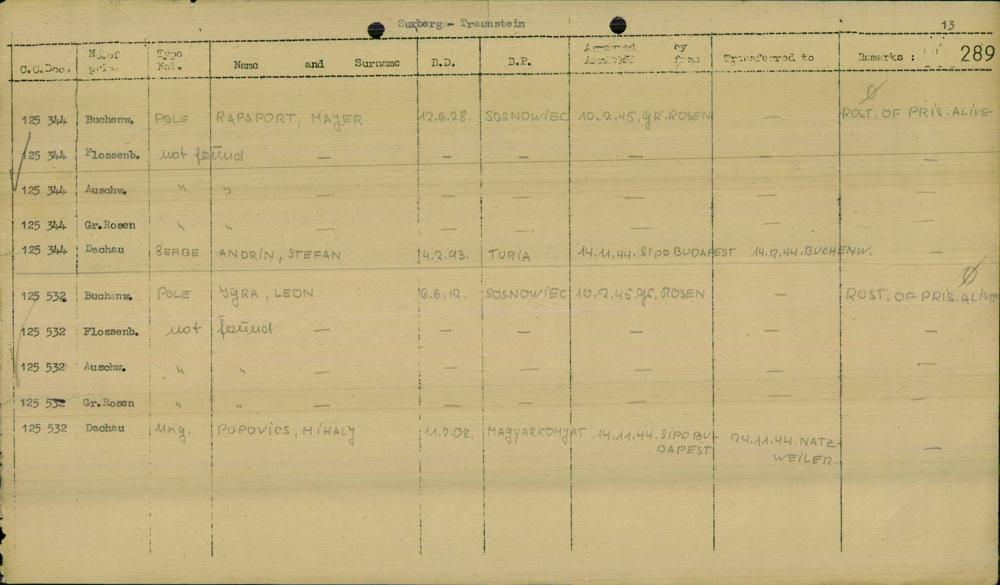 Surberg - Traunstein 13
C.C.Doc. No. of pris. Type Nat. Name and Surname B.D. B.P. Arrested by from Transferred to Remarks : 289
125 344 Buchenw. POLE RAPAPORT, MAYER 12.6.28. SOSNOWIEC 10.2.45. GR. ROSEN — ROST. OF PRIS. ALIVE
125 344 Flossenb. not found — — — — — —
125 344 Auschw. " " — — — — — —
125 344 Gr.Rosen " " — — — — — —
125 344 Dachau SERBE ANDRIN, STEFAN 14.2.93. TURIA 14.11.44. SIPO BUDAPEST 14.12.44. BUCHENW.
125 532 Buchenw. POLE IGRA, LEON 6.6.12. SOSNOWIEC 10.2.45. GR. ROSEN — ROST. OF PRIS. ALIVE
125 532 Flossenb. not found — — — — — —
125 532 Auschw. " " — — — — — —
125 532 Gr.Rosen " " — — — — — —
125 532 Dachau Ung. POPOVICS, MIHALY 11.2.08. MAGYARKOMYAT 14.11.44. SIPO BU- 24.11.44. NATZ- —
DAPEST WEILER.